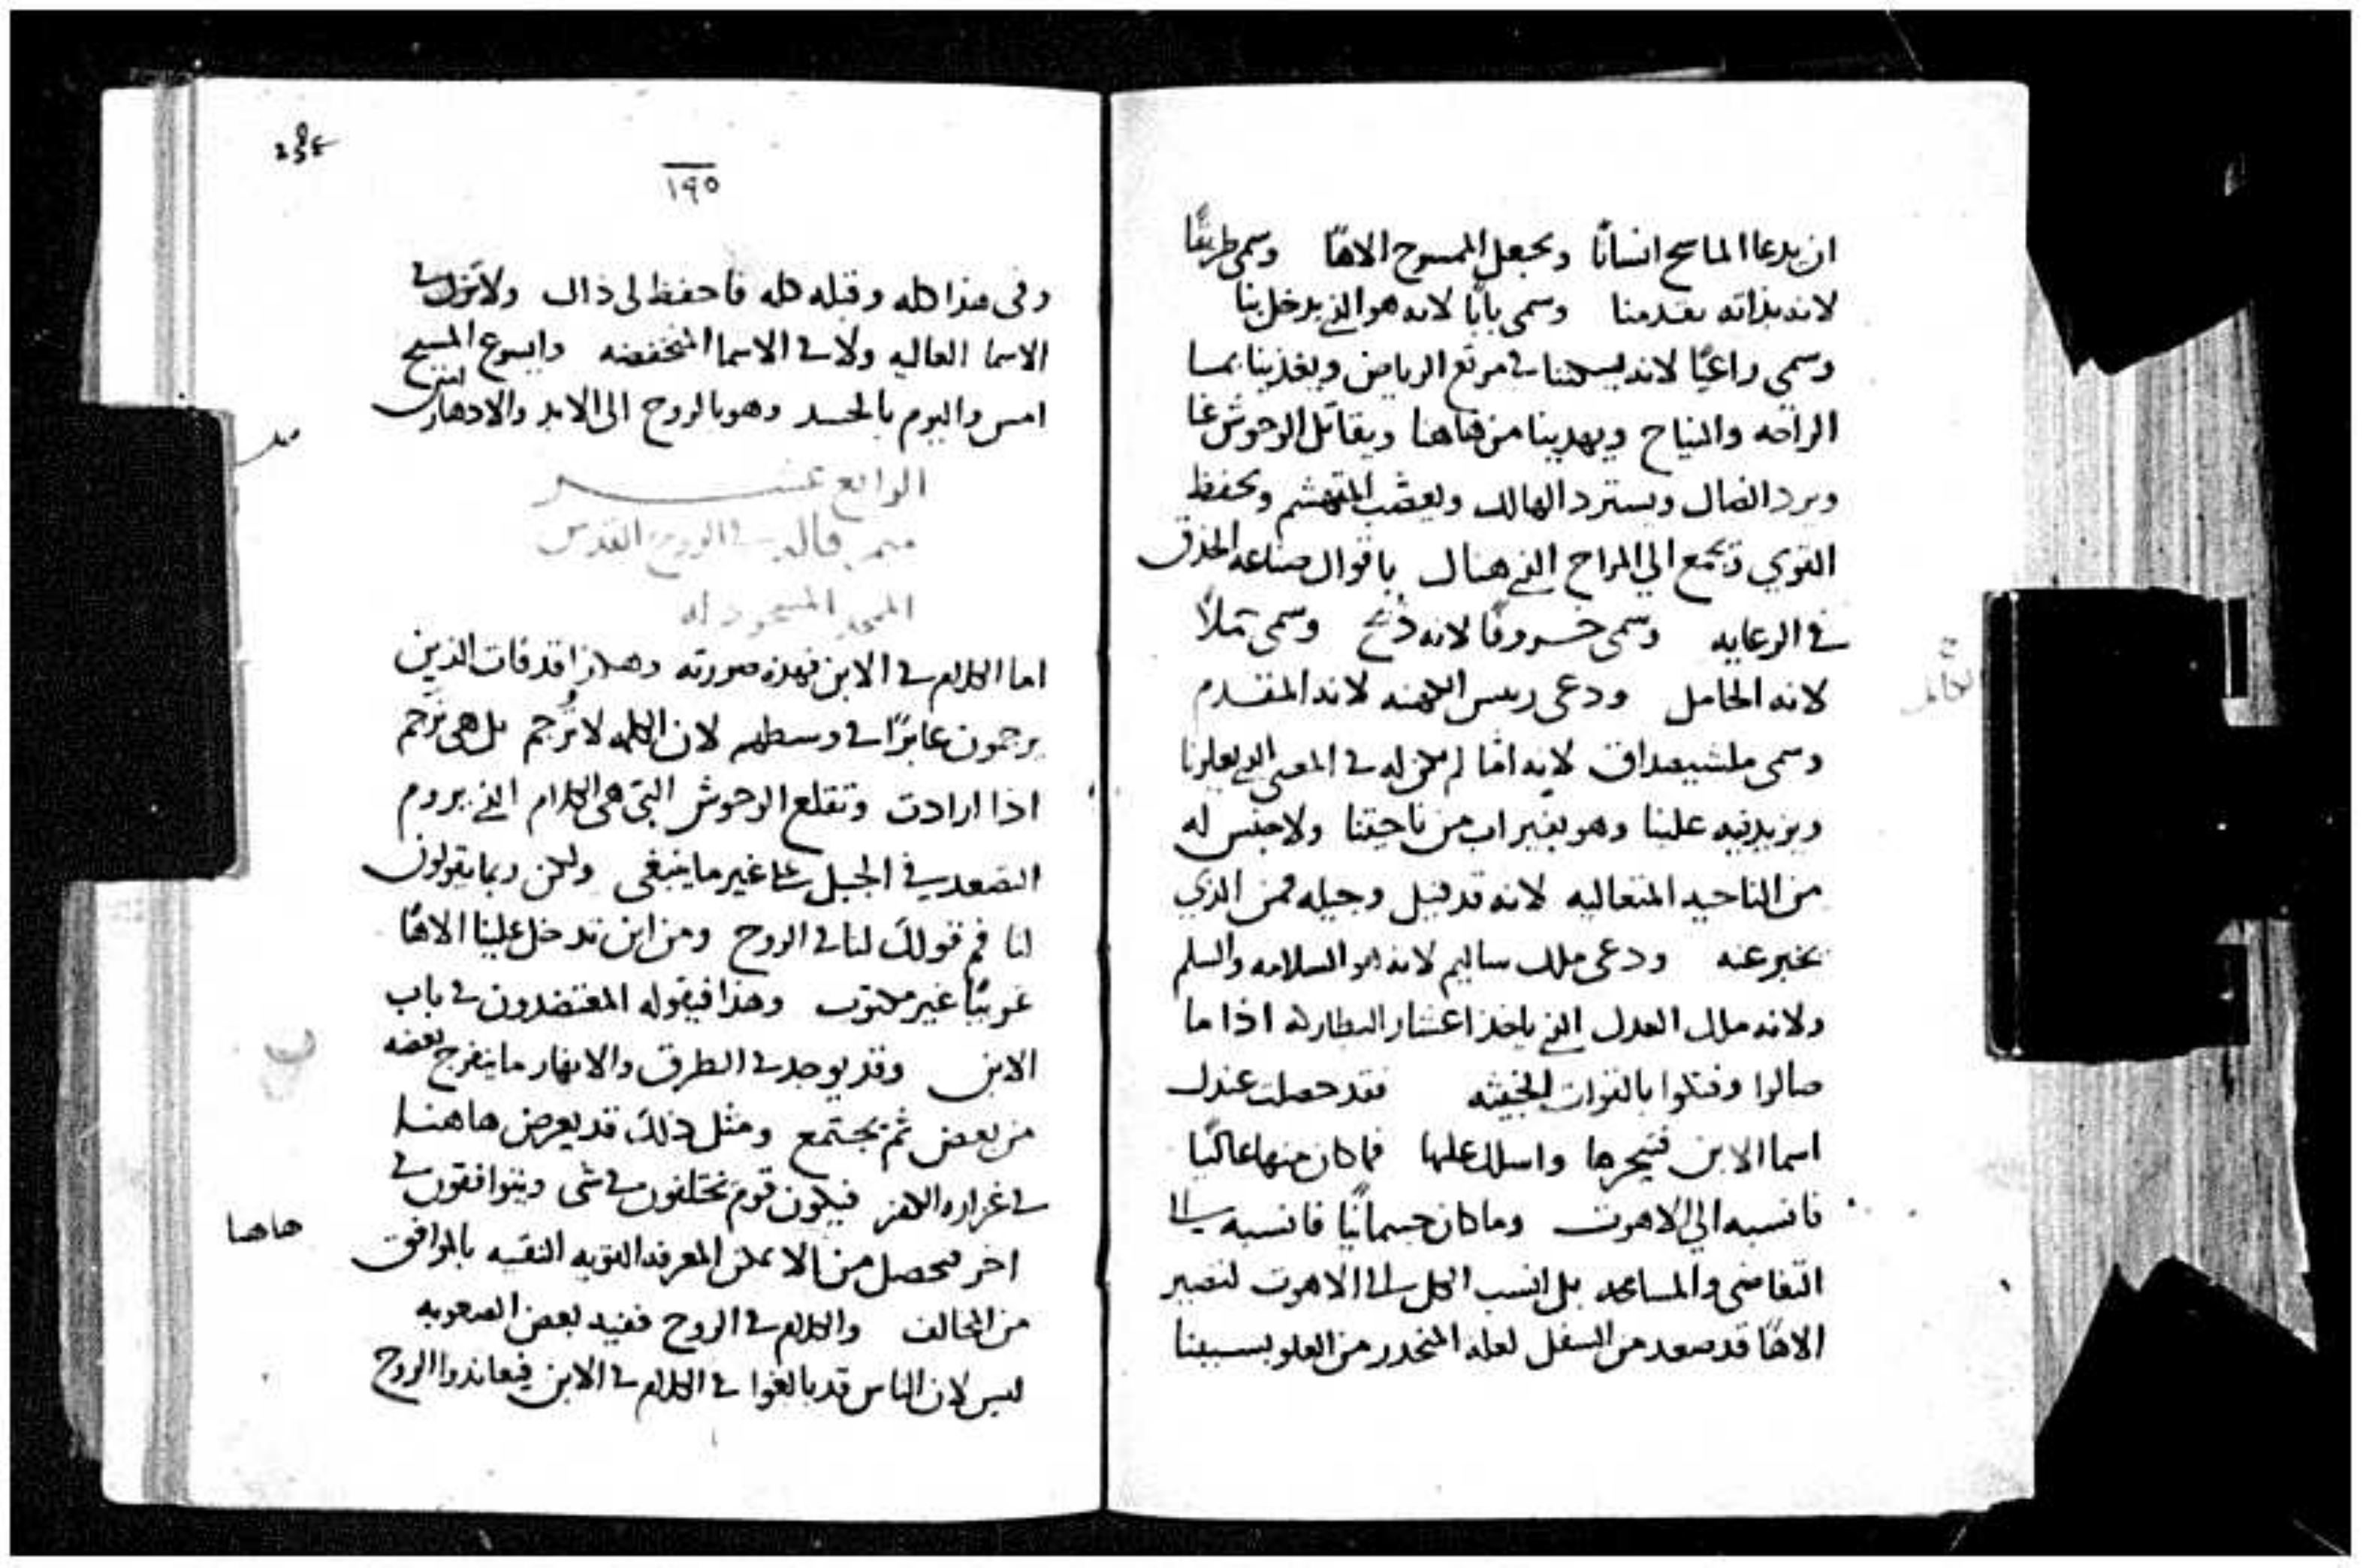 ان يدعا الماسح انسانًا ويجعل الممسوح الاهًا وسمى طريقًا
لانه بذاته يقدمنا وسمى بابًا لانه هو الذي يدخل بنا
وسمى راعيًا لانه يسكننا في مرتع الرياض ويغذينا بمسا
الراحه والنياح ويهدينا من هاهنا ويقاتل الوحوش عنا
ويرد الضال ويسترد الهالك ويعصب المتهشم ويحفظ
القوي ويجمع الي المراح الذي هناك باقوال صناعه الحذق
في الرعايه وسمى خروفًا لانه ذبح وسمى حملاً
لانه الكامل ودعى ريس الكهنه لانه المتقدم
وسمى ملشيصداق لانه امّا لم يكن له في المعنى الذي يعلونا
ويزيد فيه علينا وهو بغير اب من ناحيتنا ولا جنس له
من الناحيه المتعاليه لانه قد قيل وجيله فمن الذي
يخبر عنه ودعى ملك ساليم لانه هو السلامه والسلم
ولانه ملك العدل الذي ياخذ اعشار البطاركه اذا ما
صالوا وقتلوا بالقوات الخبيثه فقد حصلت عندك
اسما الابن فتبحرها واسلك عليها فما كان منها عاليًا
فانسبه الي الاهوت وما كان جسمانيًا فانسبه الى
التفاضى والمساعده بل انسب الكل الى الاهوت لتصير
الاهًا قد صعد من السفل لعله المنحدر من العلو بسببنا
١٩٥
وفى هذا كله وقبله كله فاحفظ لى ذاك ولا تزل في
الاسما العاليه ولا في الاسما المنخفضه وايسوع المسيح
امس واليوم بالجسد وهو بالروح الى الابد والادهار امين
الرابع عشر
ميمر قاله في الروح القدس
الممجد المسجود له
اما الكلام في الابن فهذه صورته وهكذا قد فات الذين
يرجمون عابرًا في وسطهم لان الكلمه لا تُرجم بل هي ترجم
اذا ارادت وتقلع الوحوش التي هي الكلام الذي يروم
التصعد في الجبل على غير ما ينبغي ولكن ربما يقولون
لنا فم قولك لنا في الروح ومن اين تدخل علينا الاهًا
غريبًا غير مكتوب وهذا فيقوله المقتصدون في باب
الابن وقد يوجد في الطرق والانهار ما ينفرج بعضه
من بعض ثم يجتمع ومثل ذلك قد يعرض هاهنا
في غزاره الكفر فيكون قوم يختلفون في شى ويتوافقون في
هاهنا
اخر فيحصل من الا يمكن المعرفه القويه النقيه بالموافق
من المخالف والكلام في الروح ففيه بعض الصعوبه
ليس لان الناس قد بالغوا في الكلام في الابن فيعاندوا الروح